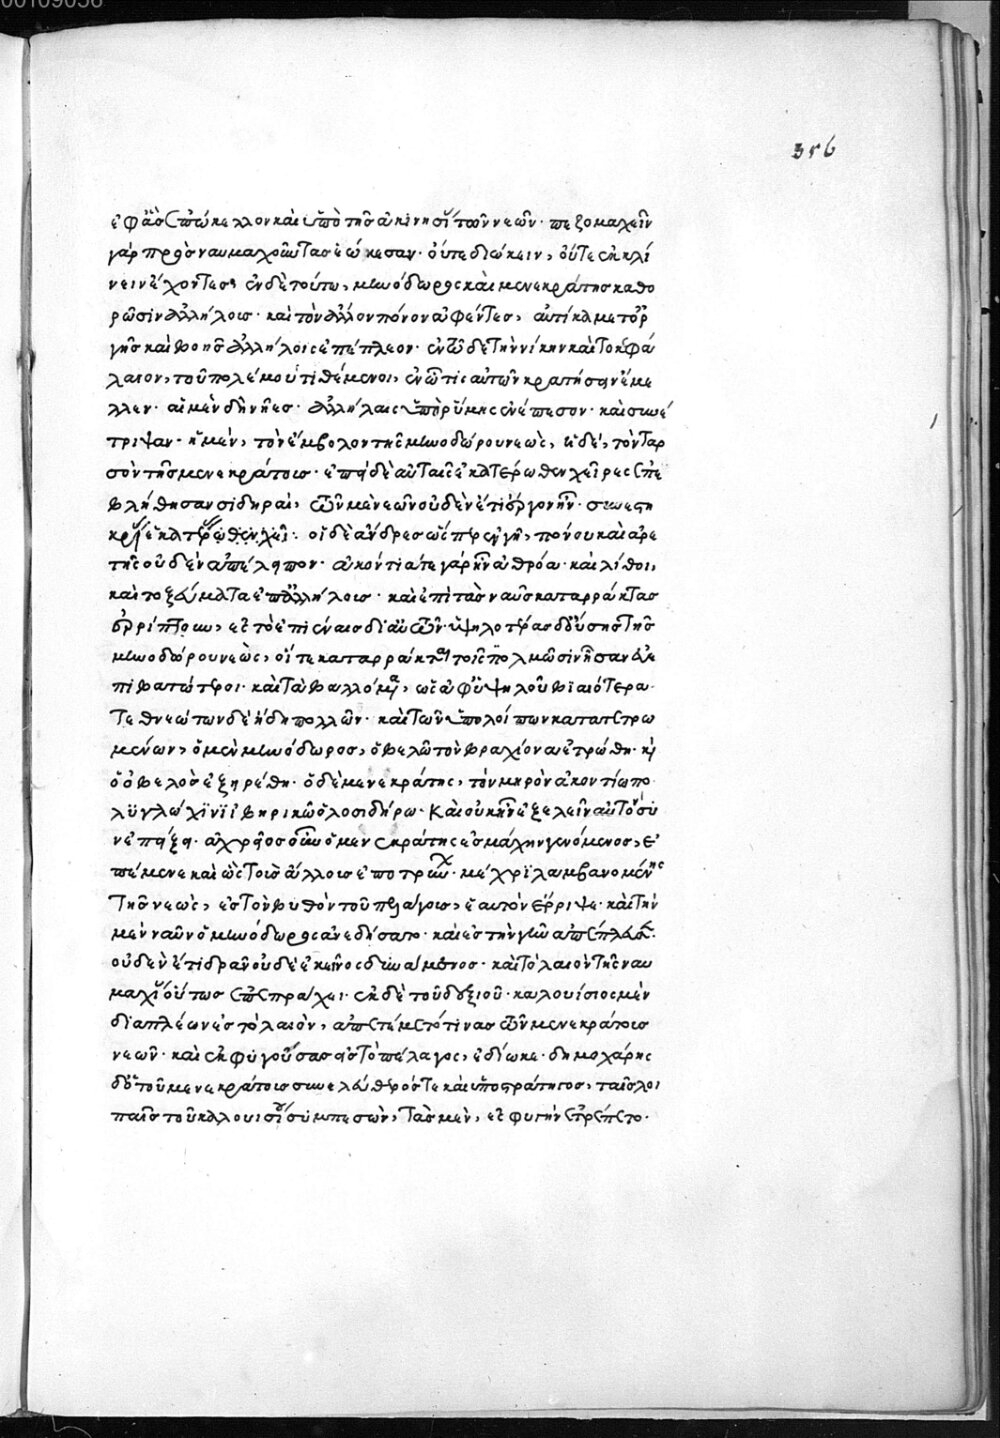 356
ἐφ' ἃς ἐπώκελλον καὶ ὑπὸ τῆς ἀκινησίας τῶν νεῶν· πεζομαχεῖν
γὰρ πρὸς ναυμαχοῦντας ἐῴκεσαν· οὔτε διώκειν, οὔτε ἐκκλί
νειν ἔχοντες· ἐν δὲ τούτῳ, μηνόδωρος καὶ μενεκράτης καθο
ρῶσιν ἀλλήλοις· καὶ τὸν ἄλλον πόνον ἀφέντες, αὐτίκα μετ' ὀρ
γῆς καὶ βοῆς ἀλλήλοις ἐπέπλεον· ἐν τῷδε τὴν νίκην καὶ τὸ κεφά
λαιον, τοῦ πολέμου τιθέμενοι, ἐν ᾧ τις αὐτῶν κρατήσειν ἔμε
λλεν· αἱ μὲν δὴ νῆες ἀλλήλαις ὑπὸ ῥύμης ἐνέπεσον· καὶ συνέ
τριψαν· ἡ μὲν, τὸν ἔμβολον τῆς μηνοδώρου νεὼς, ἡ δὲ, τὸν ταρ
σὸν τῆς μενεκράτους· ἐπεὶ δὲ αὐταῖς ἑκατέρωθεν χεῖρες ἐπε
βλήθησαν σιδηραῖ, τῶν μὲν νεῶν οὐδὲν ἔτι ἔργον ἦν· συνεστη
κυίας ἑκατέρωθεν· οἱ δὲ ἄνδρες ὥσπερ ἐν γῇ, πόνου καὶ ἀρε
τῆς οὐδὲν ἀπέλειπον· ἀκόντιά τε γὰρ ἦν ἀθρόα· καὶ λίθοι,
καὶ τοξεύματα ἐπ' ἀλλήλοις· καὶ ἐπὶ τὰς ναῦς καταρράκτας
ἐρρίπτουν, ἐς τὸ ἐπιέναι δι' αὐτῶν· ὑψηλοτέρας δ' οὔσης τῆς
μηνοδώρου νεὼς, οἵ τε καταρράκται τοῖς τολμῶσιν ἦσαν εὐε
πιβατώτεροι· καὶ τὰ βαλλόμενα, ὡς ἀφ' ὑψηλοῦ βιαιότερα·
τεθνεώτων δὲ ἤδη πολλῶν· καὶ τῶν ὑπολοίπων κατατετρω
μένων, ὁ μὲν μηνόδωρος, ὀβελῷ τὸν βραχίονα ἐτρώθη· καὶ
ὁ ὀβελὸς ἐξῃρέθη· ὁ δὲ μενεκράτης, τὸν μηρὸν ἀκοντίῳ πο
λυγλώχινι ἰβηρικῷ ὁλοσιδήρῳ· καὶ οὐκ ἦν ἐξελεῖν αὐτὸ σὺ
ν ἐπείξει· ἀχρεῖος οὖν ὁ μενεκράτης ἐς μάχην γενόμενος, ἐ
πέμενε καὶ ὣς τοὺς ἄλλους ἐποτρύνων· μέχρι λαμβανομένης
τῆς νεὼς, ἐς τὸν βυθὸν τοῦ πελάγους, ἑαυτὸν ἔρριψε· καὶ τὴν
μὲν ναῦν ὁ μηνόδωρος ἀνεδήσατο· καὶ ἐς τὴν γῆν ἀπέπλευσεν·
οὐδὲν ἔτι δρᾶν οὐδὲ ἐκεῖνος δυνάμενος· καὶ τὸ λαιὸν τῆς ναυ
μαχίας οὕτως ἐπεπράχει· ἐκ δὲ τοῦ δεξιοῦ· καλουίσιος μὲν
διαπλέων ἐς τὸ λαιὸν, ἀπετέμετό τινας τῶν μενεκράτους
νεῶν· καὶ ἐκφυγούσας ἐς τὸ πέλαγος, ἐδίωκε· δημοχάρης
δ' ὁ τοῦ μενεκράτους συνεξελεύθερός τε καὶ ὑποστράτηγος, ταῖς λοι
παῖς τοῦ καλουισίου συμπεσὼν, τὰς μὲν, ἐς φυγὴν ἐτρέπετο·